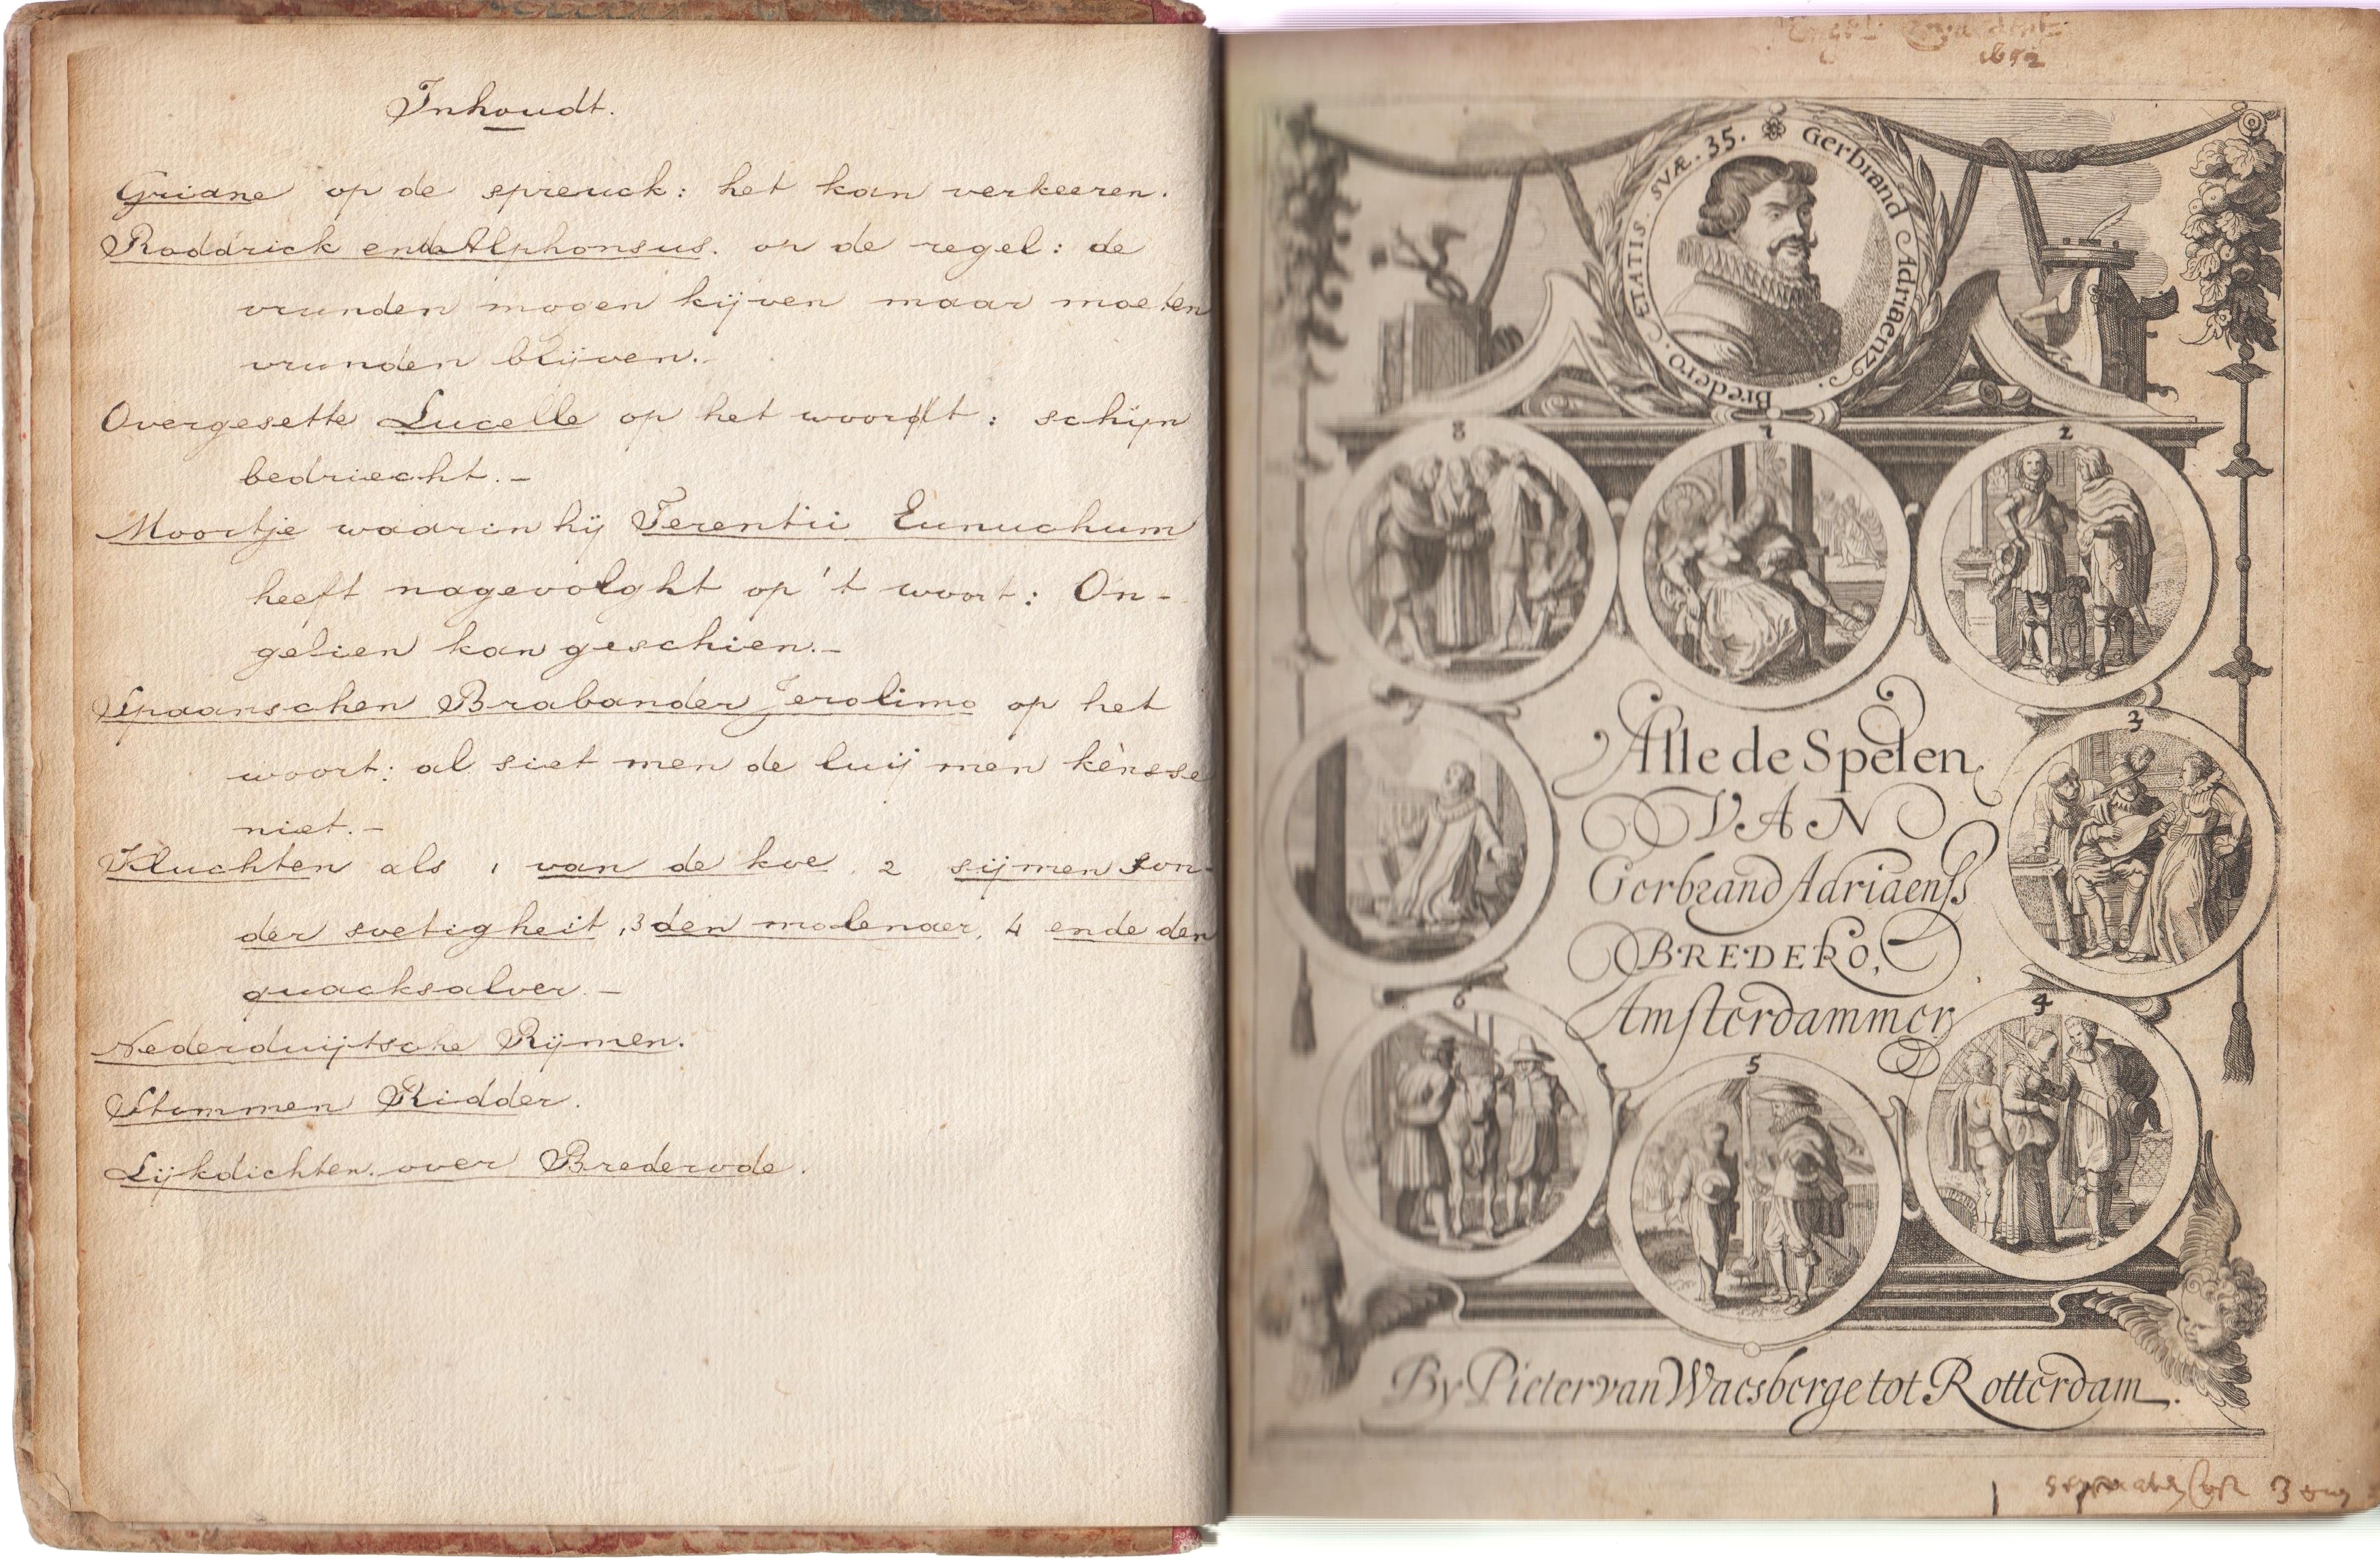 Inhoudt.
Griane op de spreuck: het kan verkeeren.
Roddrick ende Alphonsus. op de regel: de
vrunden mogen kijven maar moeten
vrunden blijven.-
Overgesette Lucelle op het woordt: schijn
bedriecht.-
Moortje waarin hij Terentii Eunuchum
heeft nagevolght op 't woort: On-
gelien kan geschien.-
Spaanschen Brabander Jerolimo op het
woort: al siet men de luij men kènsse
niet.-
Kluchten als 1 van de koe. 2 sijmen son-
der soetigheit, 3 den molenaer, 4 ende den
quacksalver.-
Nederduijtsche Rijmen.
Stommen Ridder.
Lijkdichten over Brederode.
1652
Gerbrand Adriaenzs. Bredero. ÆTATIS. SVÆ. 35.
8
1
2
3
Alle de Spelen
VAN
Gerbrand Adriaenss
BREDERO,
Amsterdammer
6
4
5
By Pieter van Waesberge tot Rotterdam.
3